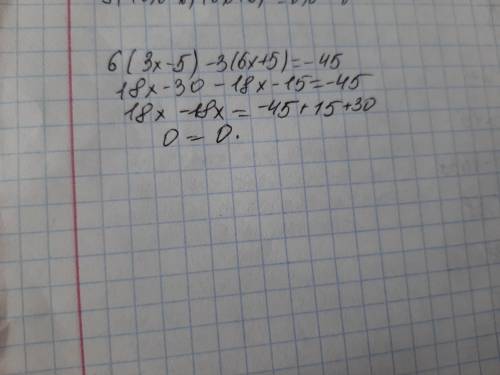 6(3x-5)-3(6x+5)=-45
18x-30-18x-15=-45
18x-18x=-45+15+30
0=0.